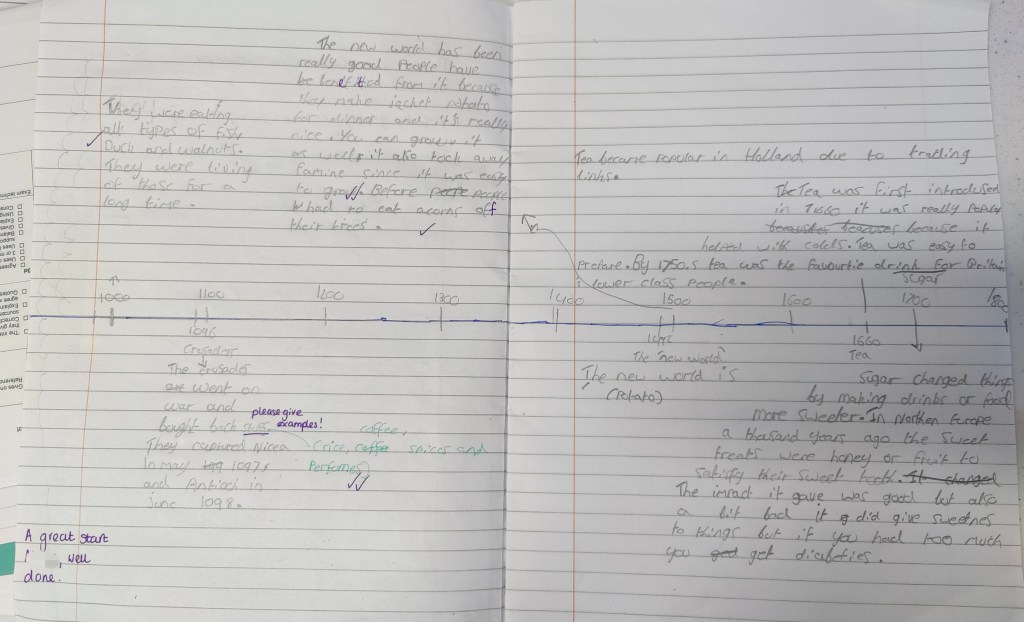 They were eating
all types of fish
Duck and walnuts.
They were living
of those for a
long time.
The new world has been
really good people have
benefitted from it because
they make jacket potato
for dinner and it's really
nice. You can grow it
as well, it also took away
famine since it was easy
to grow. Before people
had to eat acorns off
their trees.
Tea became popular in Holland due to trading
links.
The Tea was first introduced
in
it was really
because it
helped with colds. Tea was easy to
prepare. By 1750,s tea was the favourtie drink for
lower class people.
Sugar
1000
1100
1200
1300
1400
1500
1600
1700
1096
Crusades
The crusades
went on
war and
bought back
please give
examples!
coffee,
(rice, spices and
Perfumes)
They captured Nicea
In may 1097,
and Antioch in
june 1098.
A great start
, well
done.
1492
The new world
The new world is
(Potato)
1660
Tea
Sugar changed things
by making drinks or food
more sweeter. In Northen Europe
a thousand years ago the sweet
treats were honey or fruit to
satisfy their sweet tooth. It changed
The impact it gave was good but also
a bit bad it did give sweetnes
to things but if you had too much
you get diabeties.